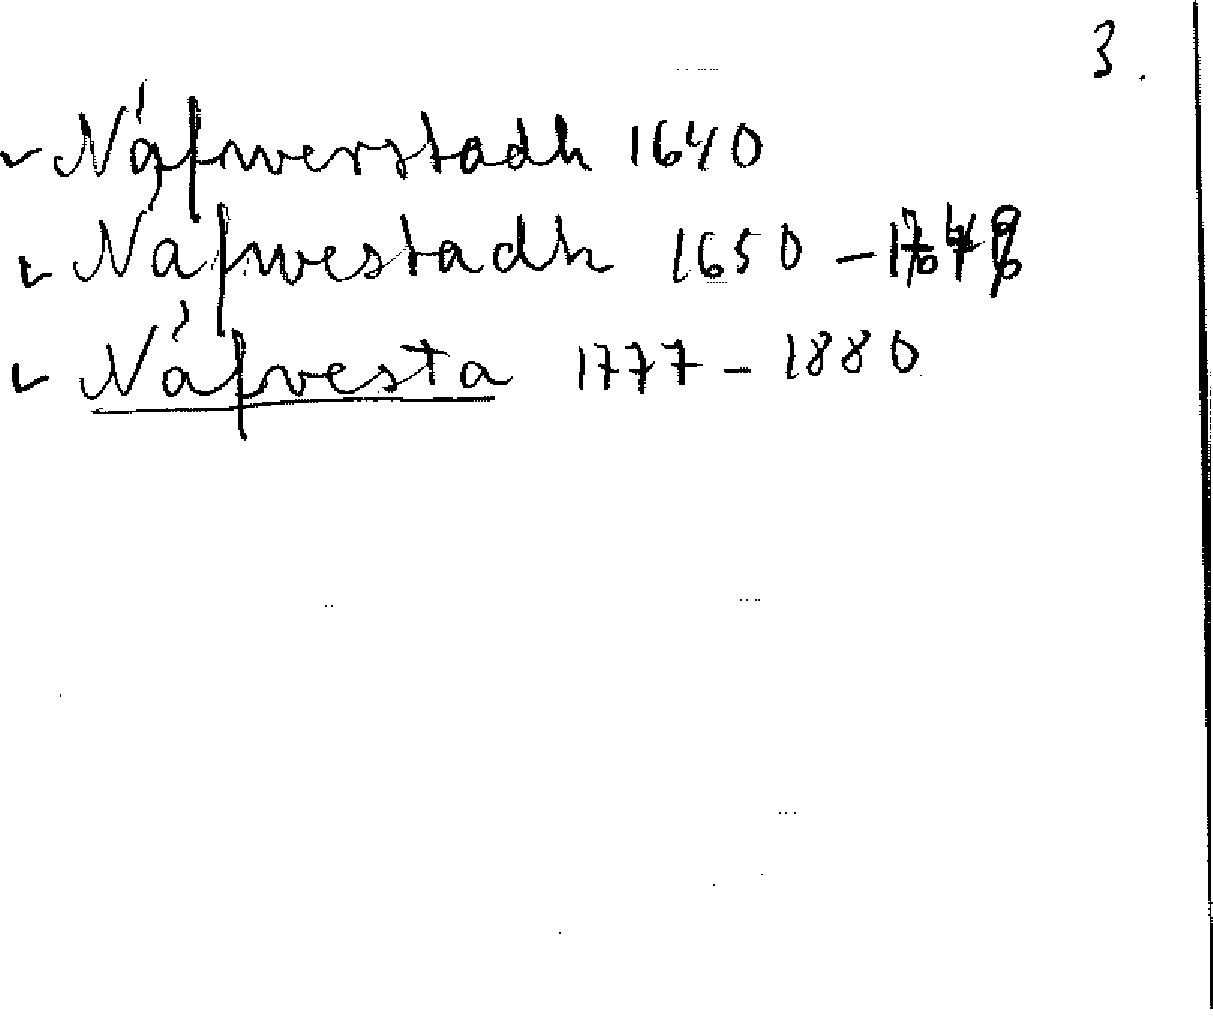 3.
✓ Náfwerstadh 1640
✓ Náfwestadh 1650 –
✓ Náfvesta 1777 – 1880